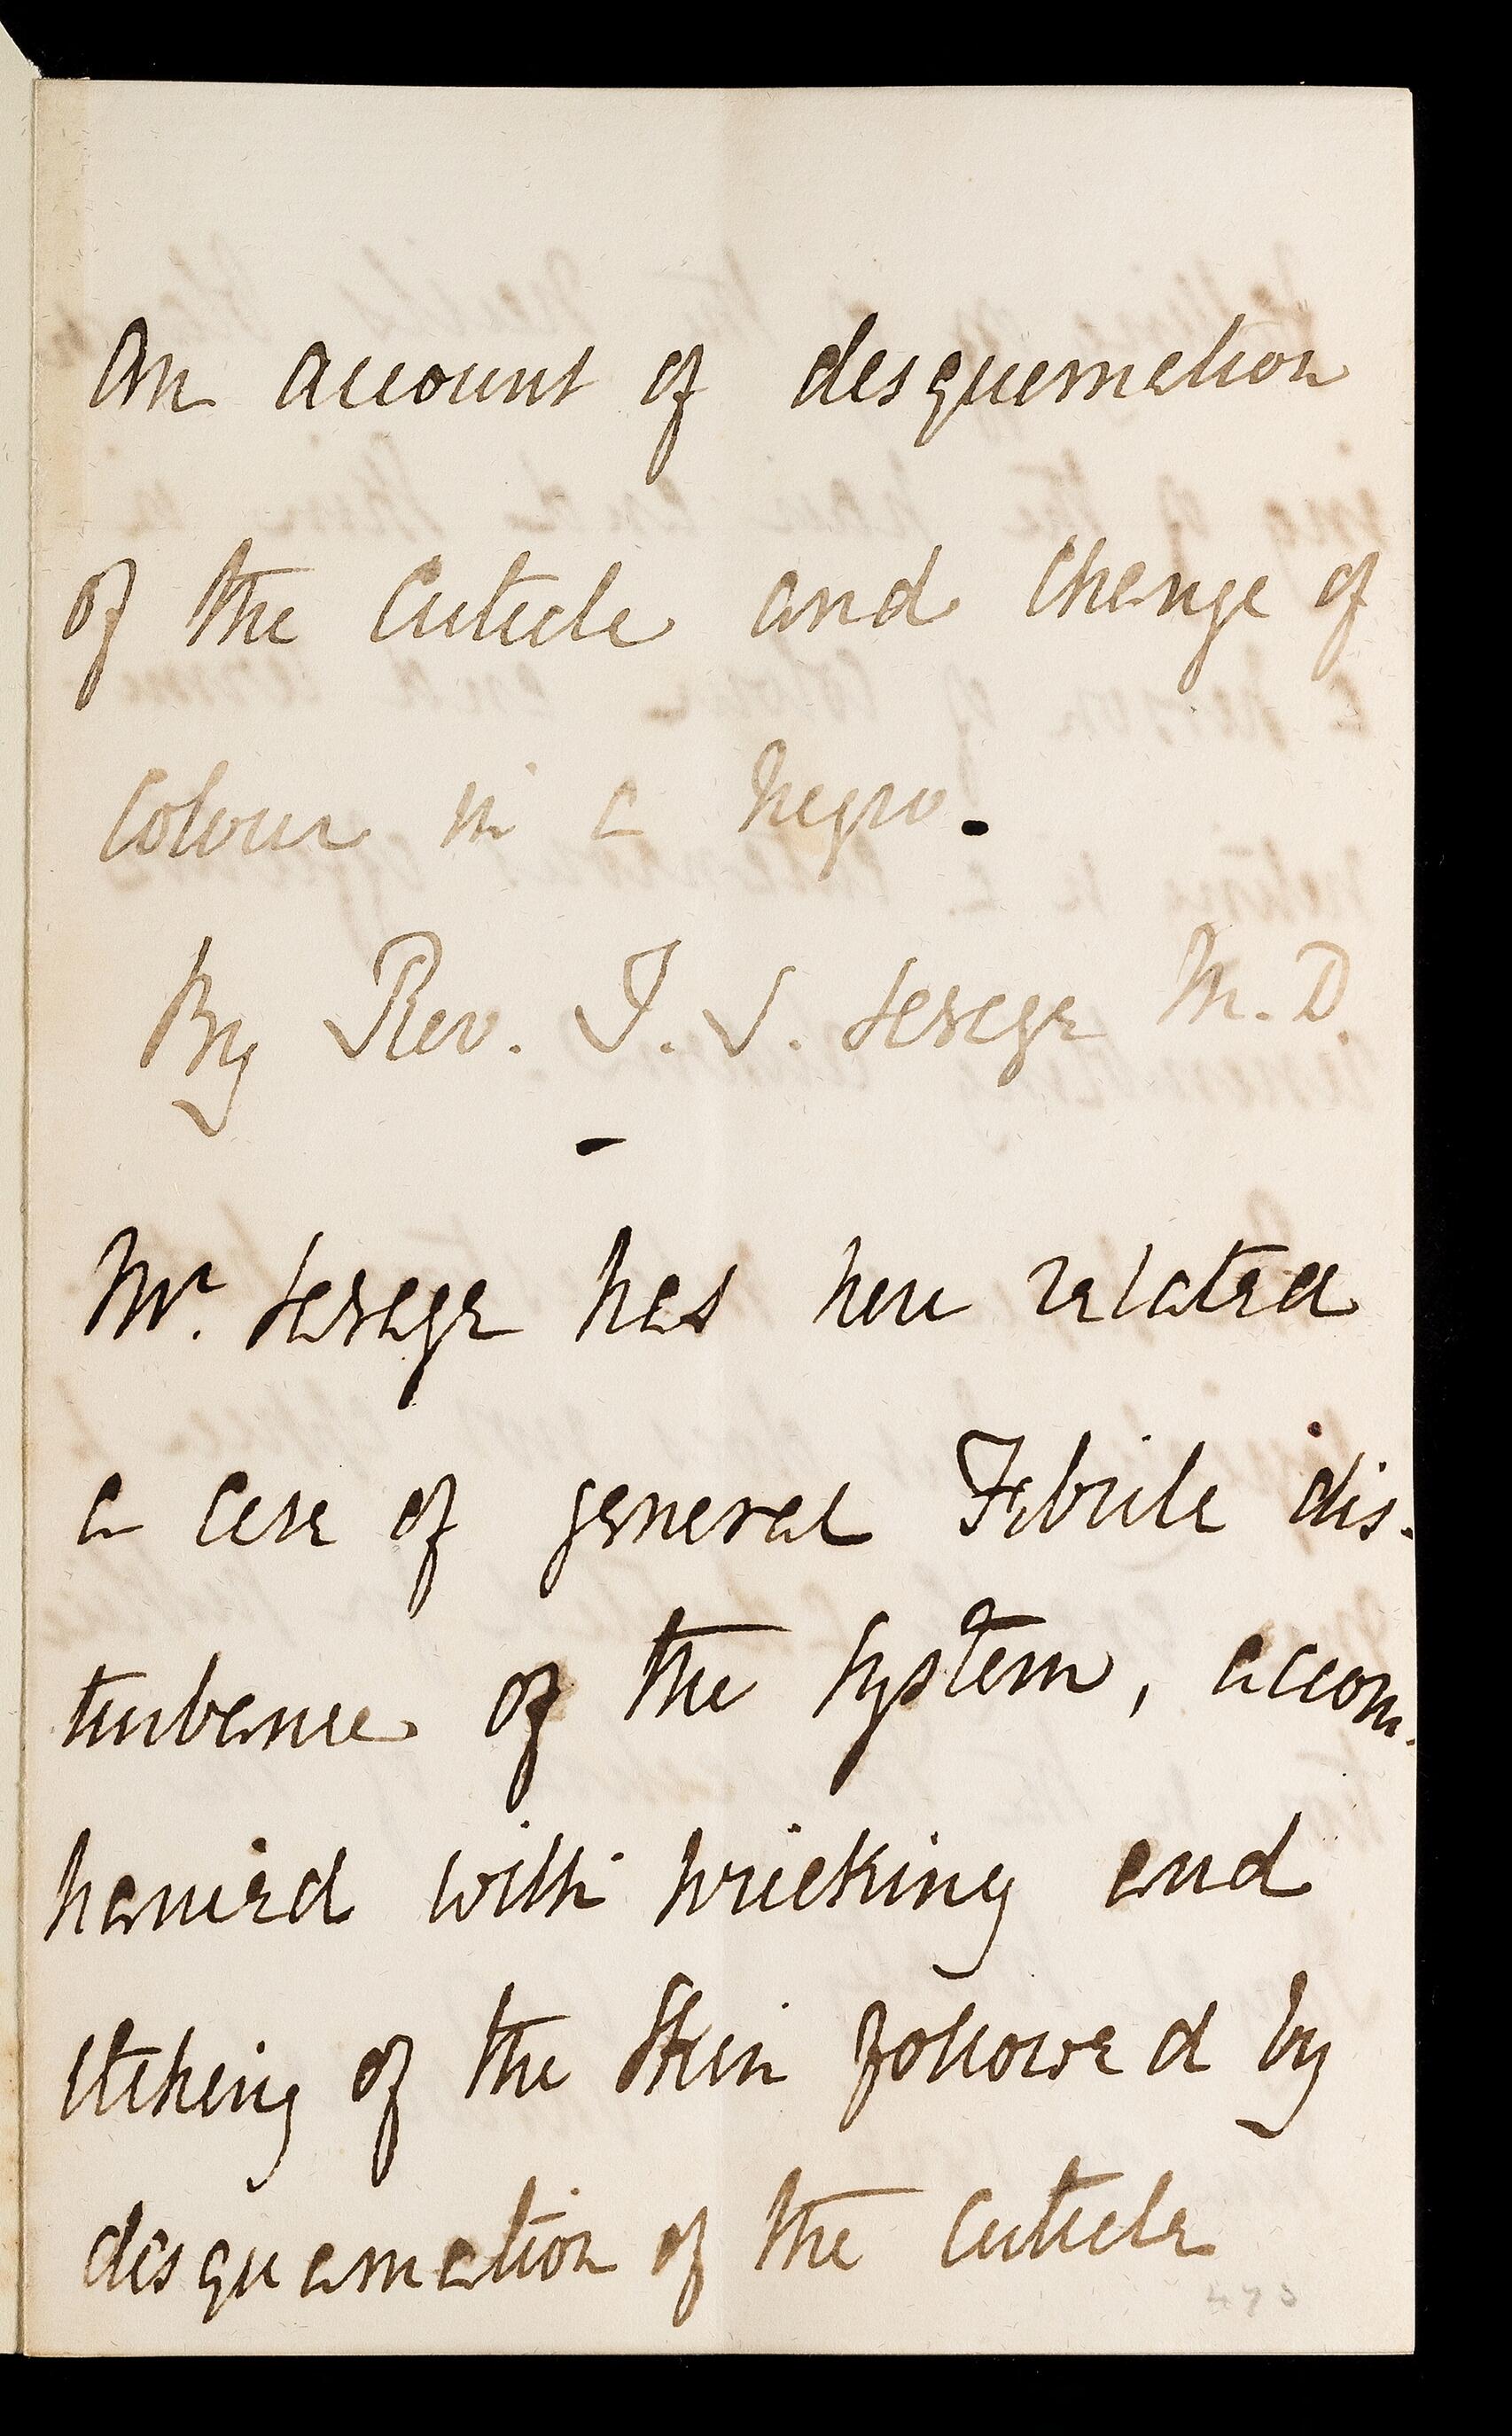 An account of desquamation
of the Cuticle and Change of
Colour in a Negro.
By Rev. T. S. Savage M.D.
Mr. Savage has here related
a case of general Febrile dis-
turbance of the System, accom-
panied with pricking and
itching of the Skin followed by
desquamation of the Cuticle
473